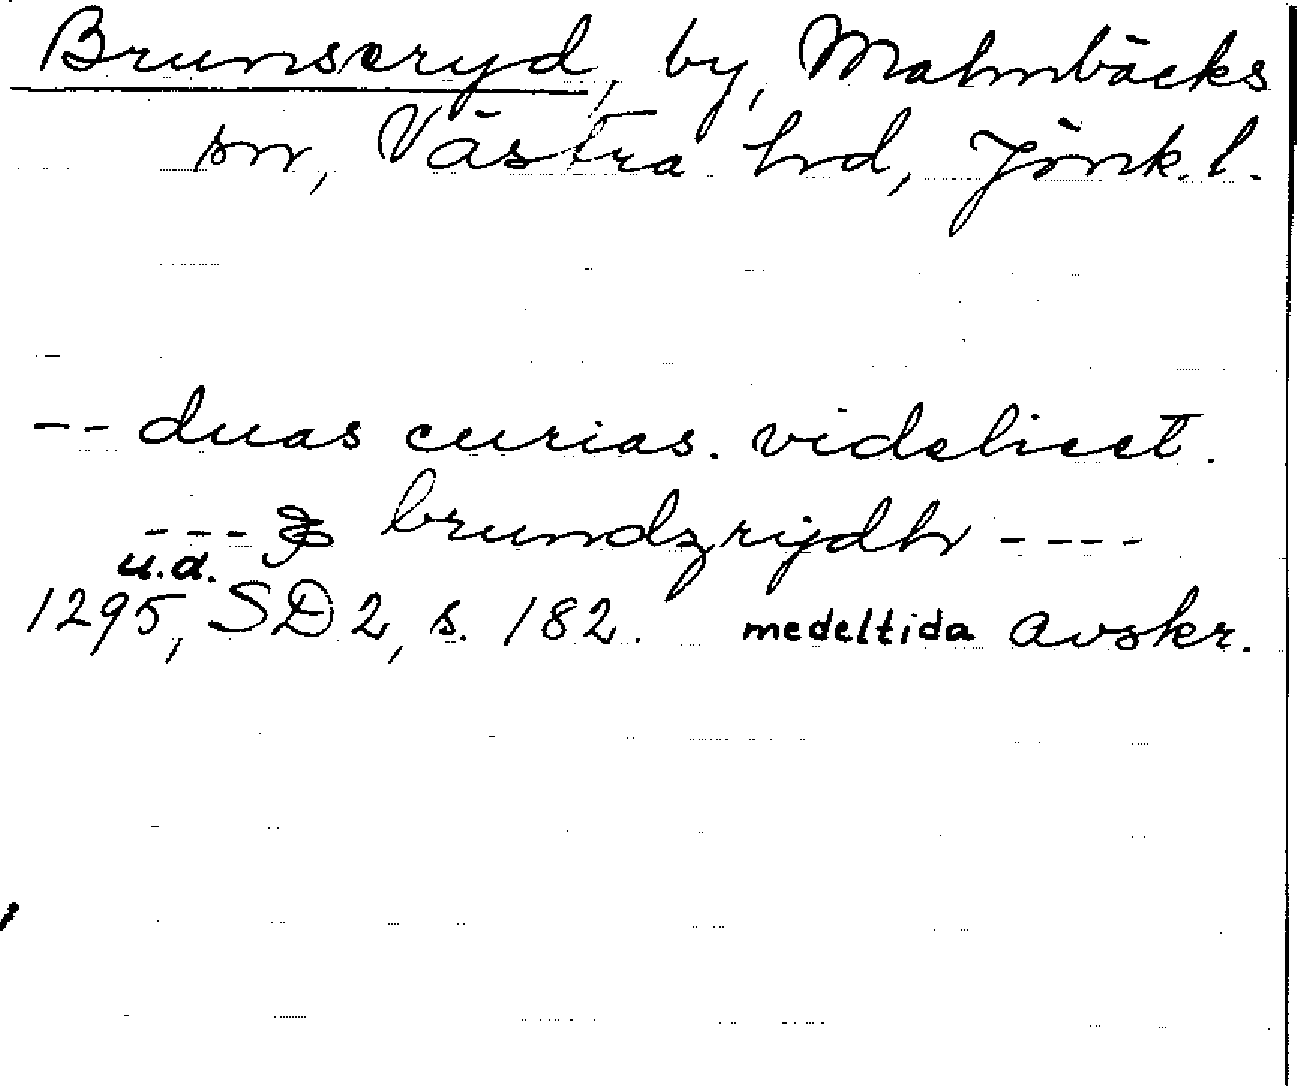 Brunseryd, by, Malmbäcks
sn, Västra hd, Jönk. l.
-- duas curias. videlicet.
--- & brundzrijdh ----
u.d.
1295, SD 2, s. 182. medeltida avskr.